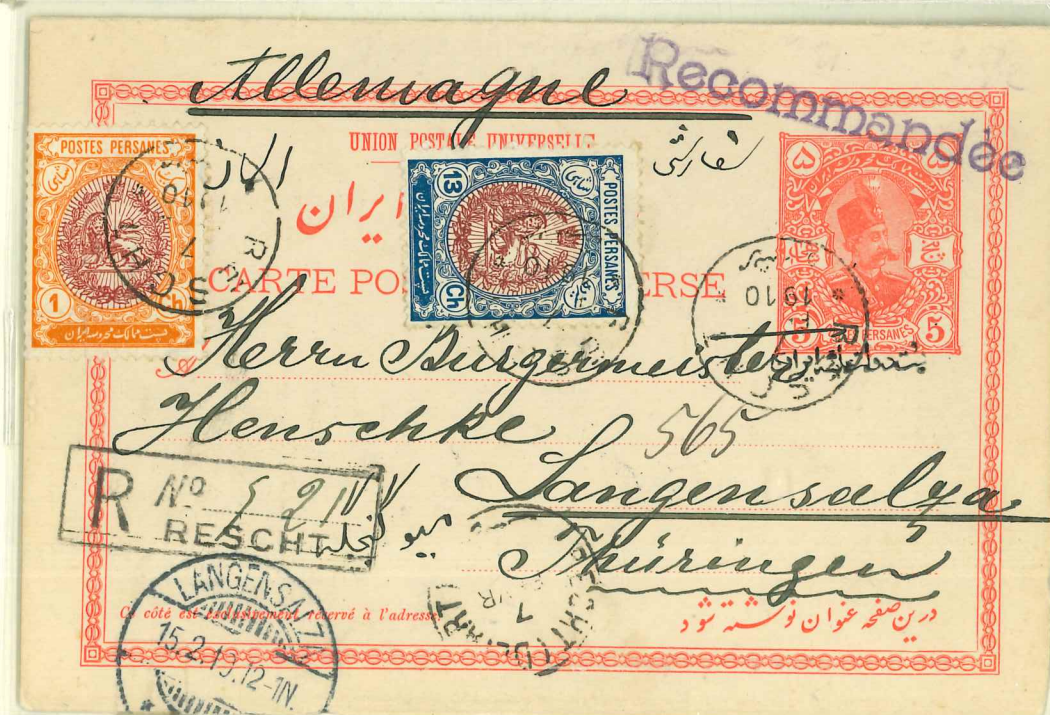 Allemagne
Recommandée
UNION POSTALE UNIVERSELLE
سفارشی
POSTES PERSANES
1
Ch
13
POSTES PERSANES
Ch
۵
5
ایران
CARTE POS ERSE
RESCHT
1910
Herrn Bürgermeister
Henschke
565
Langensalza
Thüringen
R Nº
RESCHT
LANGENSALZA
15.2.10.12-1N.
Ce côté est exclusivement réservé à l'adresse
درین صفحه عنوان نوشته شود